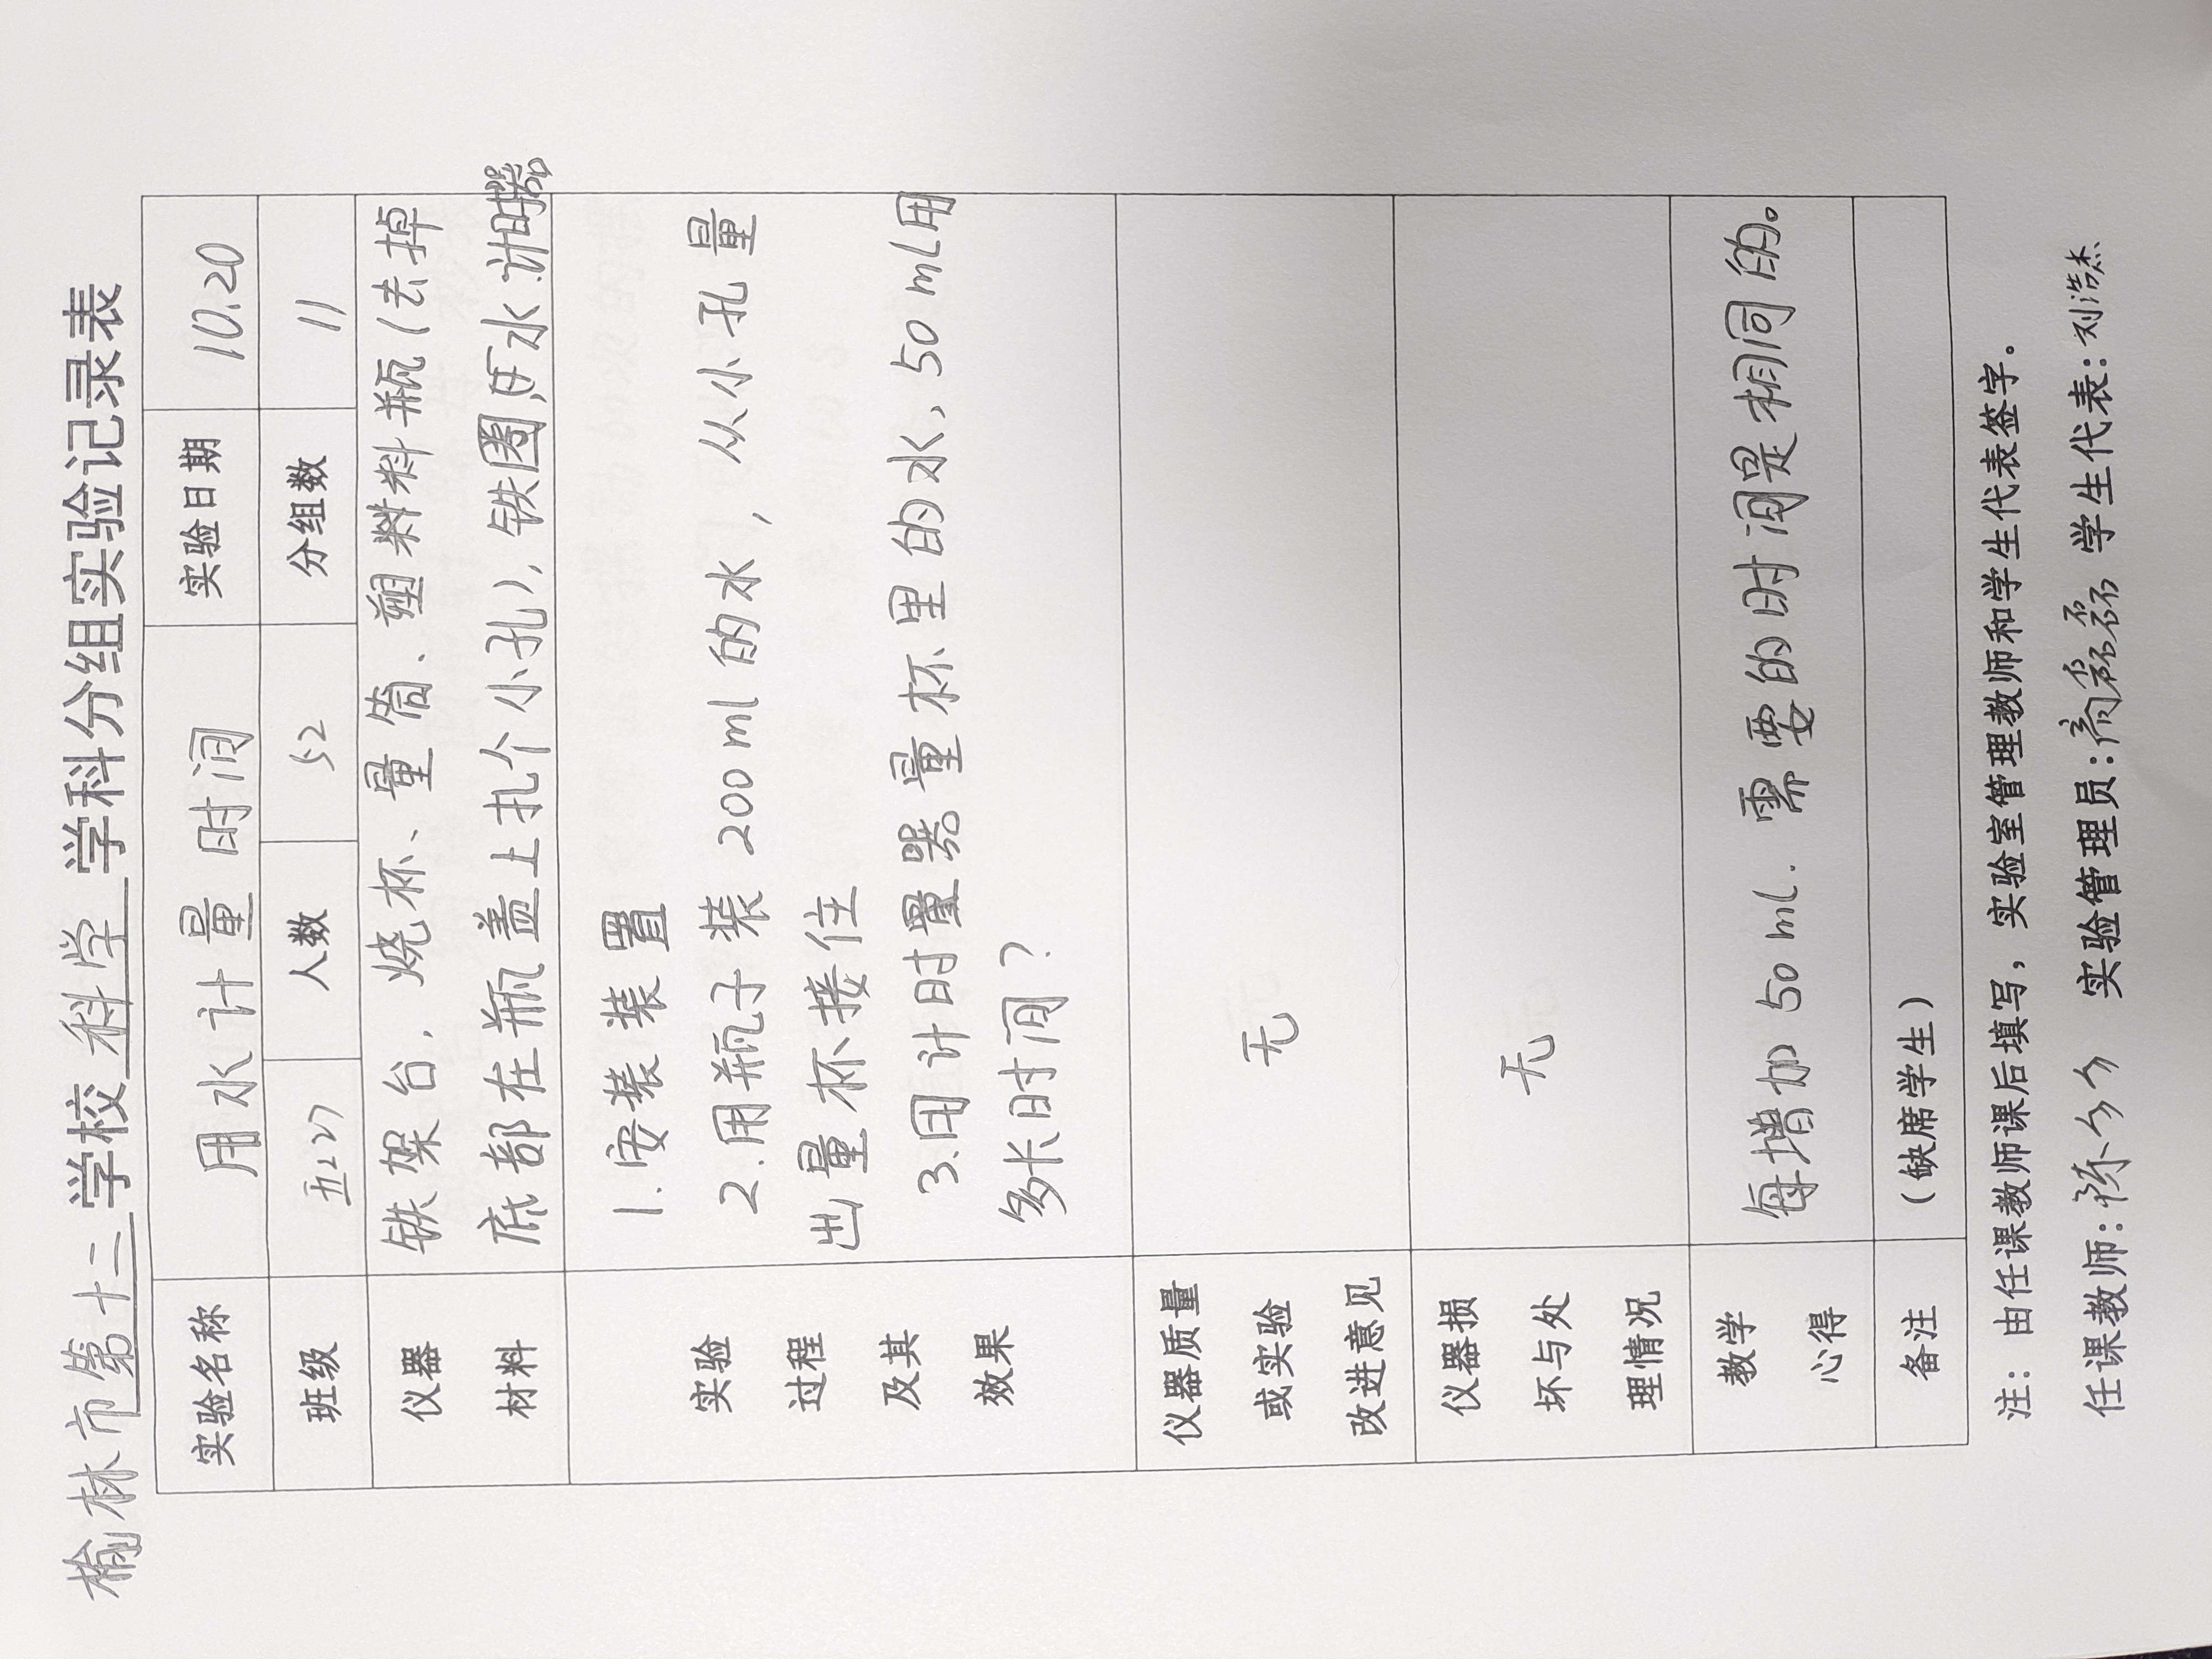 榆林市第十二学校 科学 学科分组实验记录表
实验名称 用水计量时间 实验日期 10.20
班级 五(2) 人数 52 分组数 11
仪器 铁架台、烧杯、量筒、塑料料瓶(去掉
材料 底部在瓶盖上扎个小孔),铁圈,水.计时器
1.安装装置
实验 2.用瓶子装200ml的水,从小孔量
过程 出量杯接住
及其 3.用计时量器量杯里的水,50ml用
效果 多长时间?
仪器质量
或实验 无
改进意见
仪器损
坏与处 无
理情况
教学 每增加50ml.需要的时间是相同的。
心得
备注 (缺席学生)
注:由任课教师课后填写,实验室管理教师和学生代表签字。
任课教师: 实验管理员:高磊磊 学生代表:刘浩杰